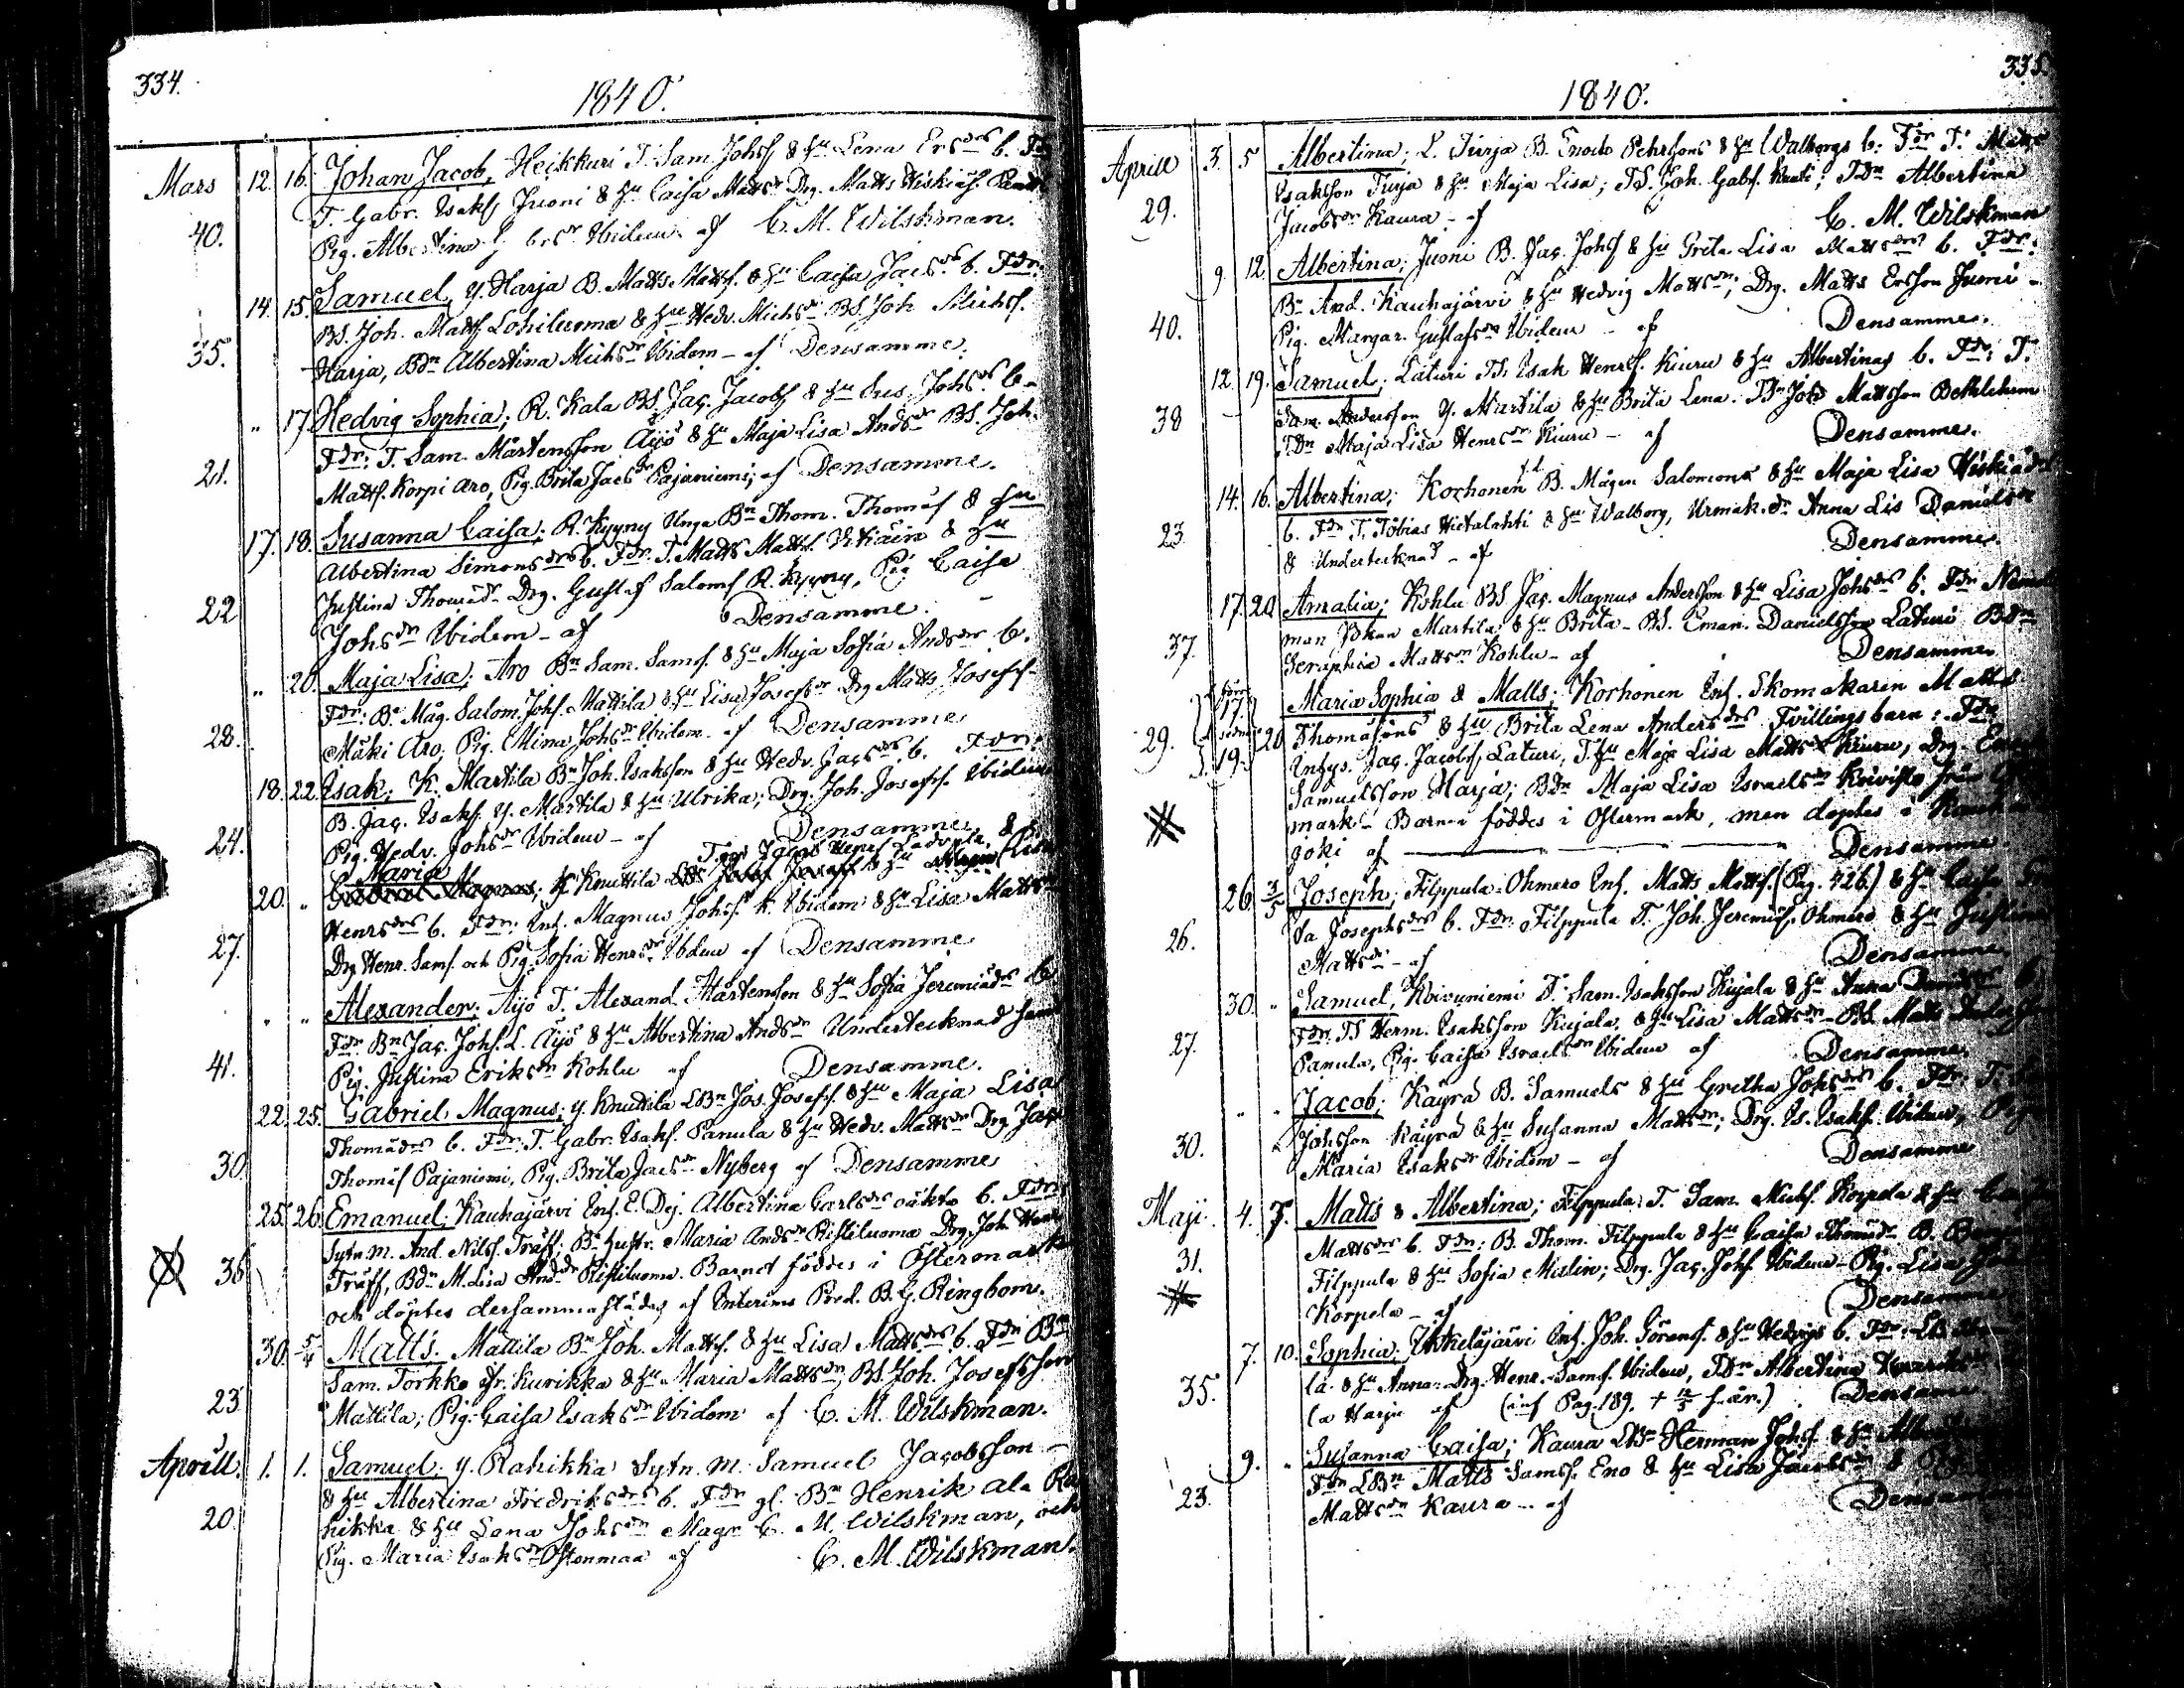 334.
1840.
Mars 12. 16. Johan Jacob, Heikkuri T. Sam. Johsf & hu Lena Ersdrs b. Fdr
T. Gabr. Esaksf Juoni & hu Caisa Mattsdr Drg. Matts Hiskiäs.
40. Pig. Albertina Ibidem af C. M. Wilskman.
14. 15. Samuel, Y. Harja B. Matts Mattsf. & hu Caisa Jacsdrs b. Fdr.
BS. Joh. Mattsf Lohiluoma & hu Hedv. Michsdr BS Joh Michsf.
35. Harja, Bdr Albertina Michsdr Ibidem - af Densamme.
" 17. Hedvig Sophia; R. Kala BS Jac. Jacobsf & hu Sus. Johsdrs b.
Fdr: T. Sam. Mårtensson Äijö & hu Maja Lisa Andsdr BS. Joh.
21. Mattsf. Korpi Aro, Pig. Brita Jacsdr Pajaniemi; af Densamme.
17. 18. Susanna Caisa; R. Kyyny Unga Bn Thom. Thomäsf & hu
Albertina Simonsdrs b. Fdr. T. Matts Mattsf. & hu
Justina Thomädr Drg. Gustaf Salomsf R. Kyyny, Pig Caisa
22 Johsdr Ibidem - af Densamme.
" 20. Maja Lisa; Aro Bn Sam. Samsf. & hu Maja Sofia Andsdrs b.
Fdr: Bn Måg. Salom. Johsf. Mattila & hu Lisa Josefsdr Drg Matts Josefsf.
28. Mäki Aro, Pig. Mina Johsdr Ibidem af Densamme.
18. 22. Esak; K. Martila Bn Joh. Esaksson & hu Hedv. Jacsdrs b. Fdr:
B. Jac. Esaksf. Y. Martila & hu Ulrika; Drg. Joh. Josefsf. Ibidem
24. Pig. Hedv. Johsdr Ibidem - af Densamme.
Maria Jacob Henrsf &
20. " Gabriel Magnus; Y. Knuttila & hu Lisa
Henrsdrs b. Fdr: Inh. Magnus Johsf. K. Ibidem & hu Lisa Mattsdr
27. Drg Henr. Samsf. och Pig. Sofia Henrsdr Ibdem af Densamme
" " Alexander; Äijö T. Alexand. Mårtenson & hu Sofia Jeremiädrs b
Fdr Bn Jac. Johsf. L. Äijö & hu Albertina Andsdr Undertecknad samt
41. Pig. Justina Eriksdr Kohlu af Densamme.
22. 25. Gabriel Magnus; Y. Knuttila LBn Jos. Josefsf. & hu Maja Lisa
Thomädrs b. Fdr: T. Gabr. Esaksf. Panula & hu Hedv. Mattsdr Drg Jac.
30. Thomäsf Pajaniemi, Pig. Brita Jacsdr Nyberg af Densamme
25. 26. Emanuel; Kauhajärvi Inh. E. Dej. Albertina Carlsdrs oäkta b. Fdr:
Sytn. M. And. Nilsf. Träff; Bn hustr. Maria Andsdr Ristiluoma Drg. Joh.
36 Träff, Bdr M. Lisa Andsdr Ristiluoma. Barnet föddes i Östermark
och döptes dersammastädes af Interims Pred. B. G. Ringbom.
30. 5/4 Matts. Mattila Bn Joh. Mattsf. & hu Lisa Mattsdrs b. Fdr Bn
Sam. Torkko fr. Kurikka & hu Maria Mattsdr, BS Joh. Josefsson
23 Mattila; Pig. Caisa Esaksdr Ibidem af C. M. Wilskman.
Aprill. 1. 1. Samuel. Y. Rahikka Sytn. M. Samuel Jacobsson
& hu Albertina Fredriksdrs b. Fdr gl. Bn Henrik Ala Ra
20. hikka & hu Lena Johsdr Magr C. M. Wilskman, och
Pig. Maria Esaksdr Ostonmaa af C. M. Wilskman.
335.
1840.
Aprill 3. 5 Albertina; L. Turja B. Enoch Pehrsons & hu Walborgs b. Fdr T. Matts
Esaksson Turja & hu Maja Lisa; TS. Joh. Gabsf. Knuti; Tdr Albertina
29. Jacobsdr Kaura - af C. M. Wilskman
9. 12. Albertina; Juoni B. Jac. Johsf & hu Greta Lisa Mattsdrs b. Fdr:
Bn And. Kauhajärvi & hu Hedvig Mattsdr; Drg. Matts Ersson Juoni -
40. Pig. Margar. Gustafsdr Ibidem - af Densamme.
12. 19. Samuel; Laturi TS. Esak Henrsf. Kiuru & hu Albertinas b. Fdr: T.
Sam. Andersson Y. Martila & hu Brita Lena. Joh Mattsson Bethlehem
38 Tdr Maja Lisa Henrsdr Kiuru - af Densamme.
14. 16. Albertina; Korhonen B. Mågen Salomons & hu Maja Lisa Hiskiädrs
b. Fdr T. Tobias Hietalahti & hu Walborg, Urmak. dr Anna Lis Danielsdr
23 & Undertecknad - af Densamme.
17. 20. Amalia; Kohlu BS Jac. Magnus Andersson & hu Lisa Johsdrs b. Fdr
man Johan Martila & hu Brita - BS. Eman. Danielsson Laturi Bdr
37. Seraphia Mattsdr Kohlu - af Densamme
17. Maria Sophia & Matts; Korhonen Inh. Skomakaren Matts
29. 19. 20 Thomäsons & hu Brita Lena Andersdrs Tvillingsbarn: Fdr
Inhys. Jac. Jacobsf, Laturi, T. hu Maja Lisa Mattsdr Kiuru, Drg.
Samuelsson Harja; Bdr Maja Lisa Israelsdr Kivistö från
mark - Barnen föddes i Östermark, men döptes i
joki af Densamme
26. 3/5 Joseph; Filppula Ohmero Inh. Matts Mattsf. (Pag. 426.) & hu Caisa
sa Josephsdrs b. Fdr: Filppula T. Joh. Jeremiäsf. Ohmero & hu Justina
26. Mattsdr - af Densamme
30. " Samuel; Koivuniemi T. Sam. Esaksson Kujala & hu Anna b.
Fdr. TS Herm. Esaksson Kujala, & hu Lisa Mattsdr - BS. Matts
27. Panula, Pig. Caisa Israelsdr Ibidem af Densamme
" " Jacob; Käyrä B. Samuels & hu Gretha Johsdrs b. Fdr: T.
Johsson Käyrä & hu Susanna Mattsdr; Drg. Es. Esaksf. Ibidem, Pig
30. Maria Esaksdr Ibidem - af Densamme
Maji. 4. 7. Matts & Albertina; Filppula T. Sam. Michsf. Korpela & hu
Mattsdrs b. Fdr: B. Thom. Filppula & hu Caisa Thomädr B.
31. Filppula & hu Sofia Malin; Drg. Jac. Johsf. Ibidem - Pig. Lisa
Korpela - af Densamme
7. 10. Sophia; Inh. Joh. Göransf. & hu Hedvigs b. Fdr:
la & hu Anna - Drg. Henr. Samsf. Ibidem, Tdr Albertina
35. la Harju af (inf Pag. 189. + s. år.) Densamme
9. " Susanna Caisa; Kaura LBn Herman Johsf. & hu
Fdr LBn Matts Samsf. Eno & hu Lisa &
23. Mattsdr Kaura - af Densamme